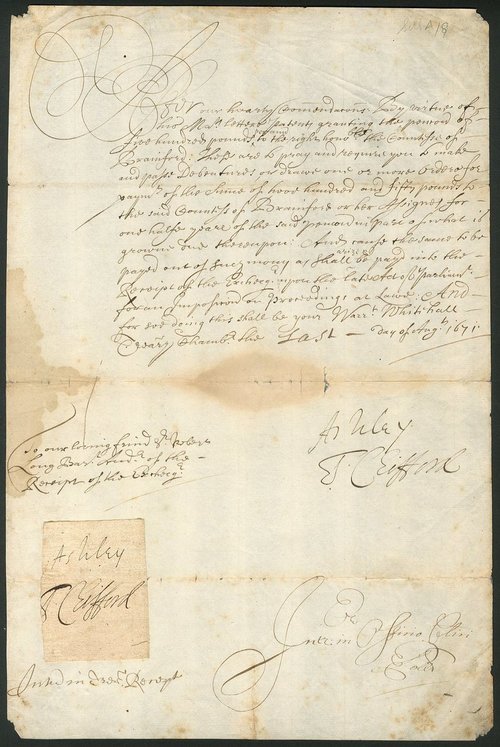 After our hearty Comendacons By virtue of
his Ma:ts letters Patents granting the pencon of
five hundred pounds p annum to the right hono:ble the Countesse of
Brainford; These are to pray and require you to make
and passe Debentures or drawe one or more Orders for
paym:t of the Sume of two hundred and fifty pounds to
the said Countess of Brainford or her Assignes for
one halfe yeare of the said pencon in part of what is
growne due thereupon: And cause the same to be
payed out of such mony as shall arize & be payd into the
Receipt of the Excheq:r upon the late Act of Parliam:t
for an Imposicon on Proceedings at Lawe. And
for soe doing this shall be your Warr:t Whitehall
Trea:ry Chamb:r the Last day of Aug:t 1671
Ashley
T Clifford
To our loving friend S:r Robert
Long Bar:t Aud:r of the
Receipt of the Excheq:r
Ashley
T Clifford
Intr: in Officio
Receipt